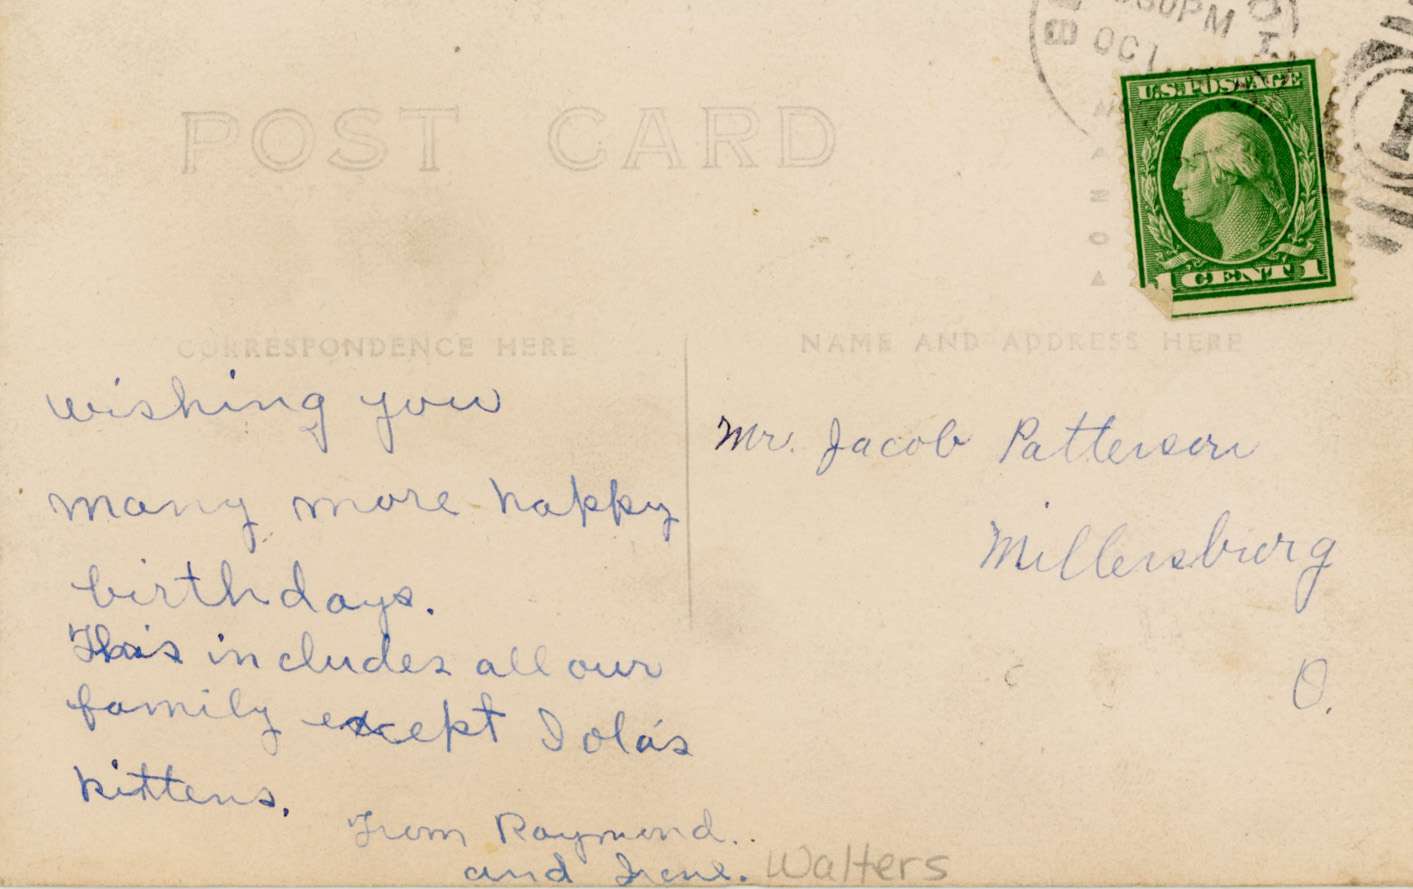 30PM
OCT
POST CARD
U.S.POSTAGE
1 CENT 1
CORRESPONDENCE HERE
NAME AND ADDRESS HERE
wishing you
many more happy
birthdays.
This includes all our
family except Iola's
kittens.
From Raymond.
and Irene. Walters
Mr. Jacob Patterson
Millersburg
O.